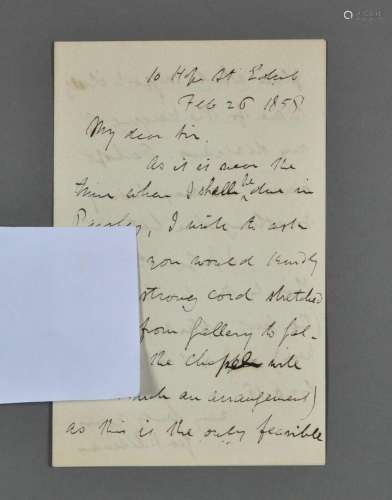 10 Hope St Edinb
Feb 26 1858
My dear Sir.
As it is near the
time when I shall be due in
Paisley, I write to ask
you would kindly
strong cord stretched
from gallery to gal-
the chapel will
such an arrangement)
as this is the only feasible